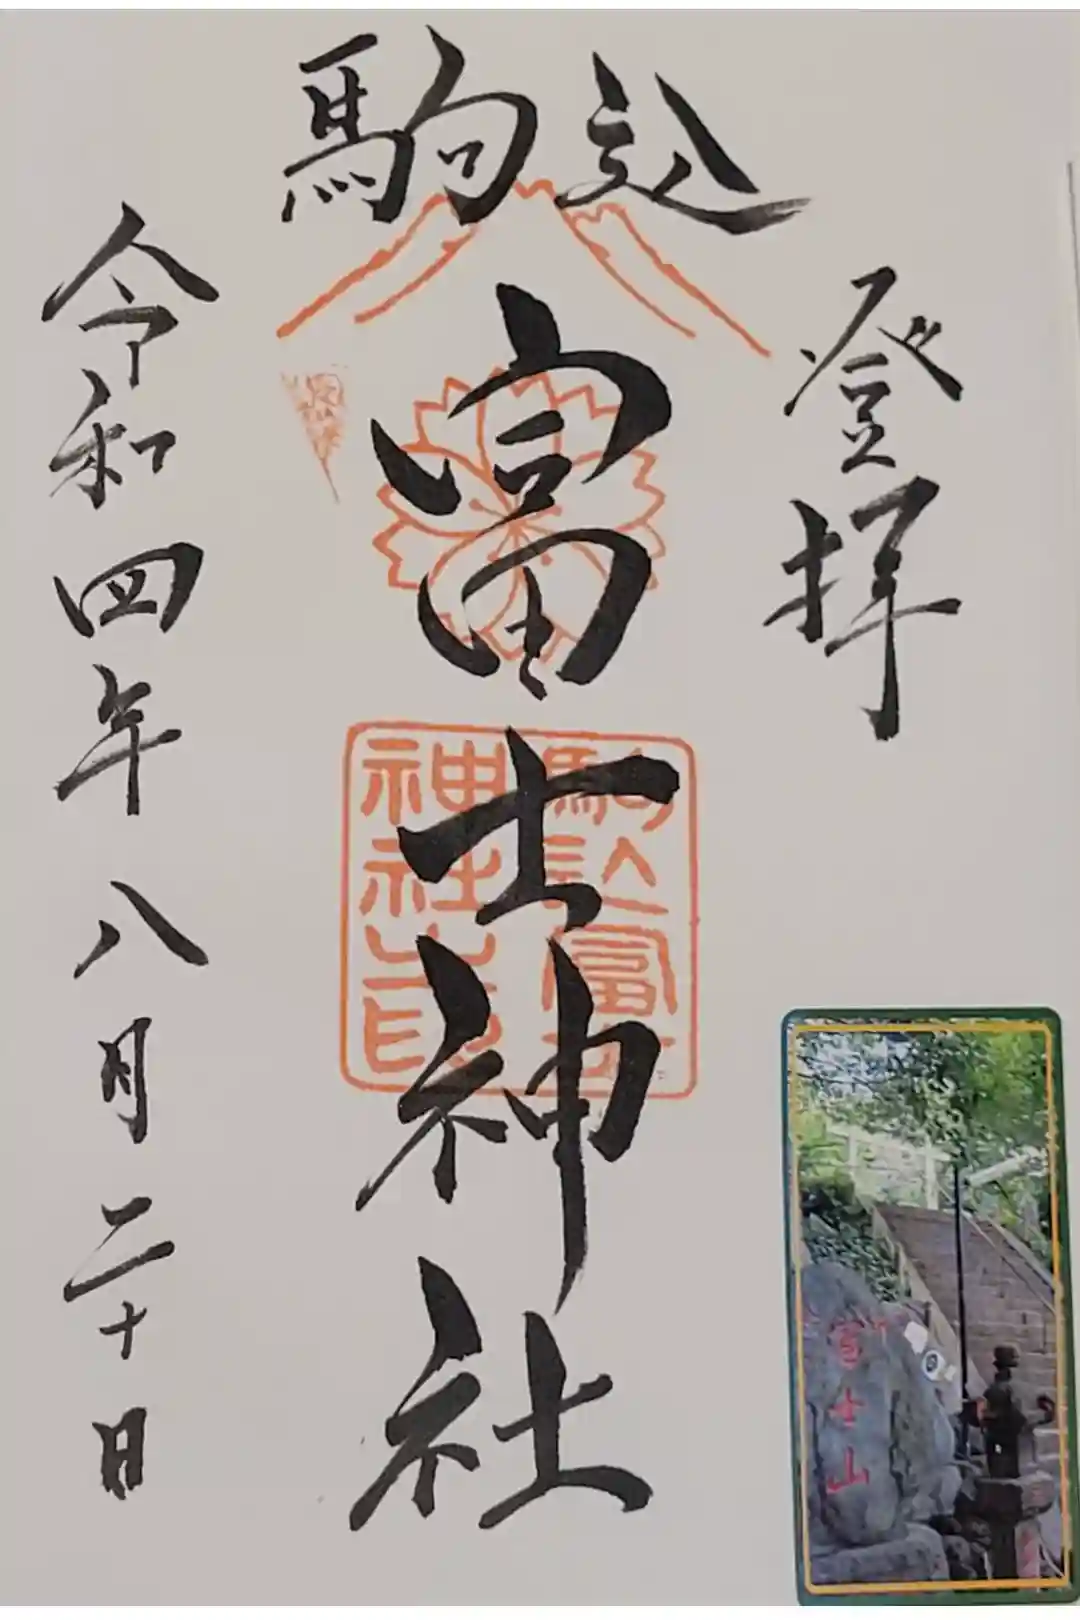 登拝
駒込
富士神社
令和四年八月二十日
駒込富士
神社之印
富士山